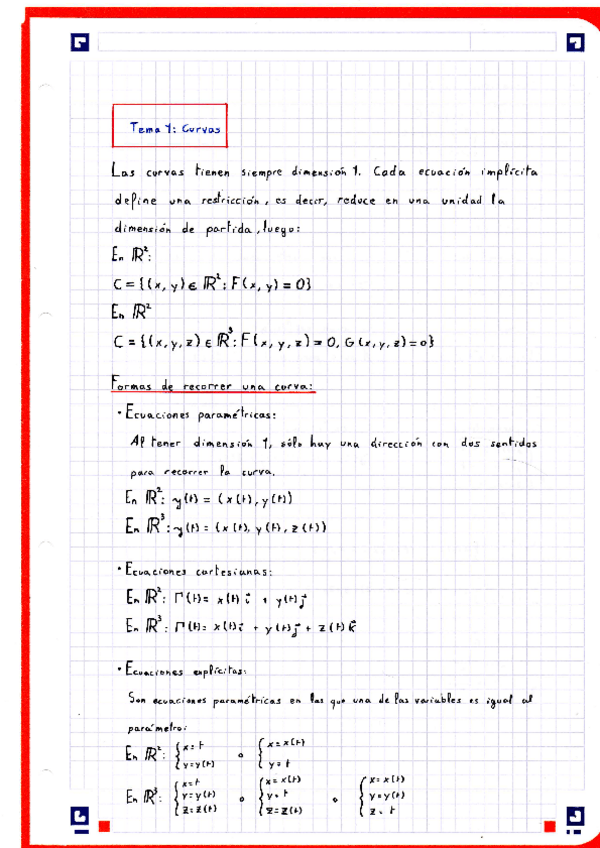 Tema 1: Curvas
Las curvas tienen siempre dimensión 1. Cada ecuación implícita
define una restricción, es decir, reduce en una unidad la
dimensión de partida, luego:
En ℝ²:
C = {(x, y) ∈ ℝ² : F(x, y) = 0}
En ℝ²
C = {(x, y, z) ∈ ℝ³ : F(x, y, z) = 0, G(x, y, z) = 0}
Formas de recorrer una curva:
· Ecuaciones paramétricas:
Al tener dimensión 1, sólo hay una dirección con dos sentidos
para recorrer la curva.
En ℝ²: γ(t) = (x(t), y(t))
En ℝ³: γ(t) = (x(t), y(t), z(t))
· Ecuaciones cartesianas:
En ℝ²: Γ(t) = x(t) i⃗ + y(t) j⃗
En ℝ³: Γ(t) = x(t) i⃗ + y(t) j⃗ + z(t) k⃗
· Ecuaciones explícitas:
Son ecuaciones paramétricas en las que una de las variables es igual al
parámetro:
En ℝ²: { x = t, y = y(t) o { x = x(t), y = t
En ℝ³: { x = t, y = y(t), z = z(t) o { x = x(t), y = t, z = z(t) o { x = x(t), y = y(t), z = t